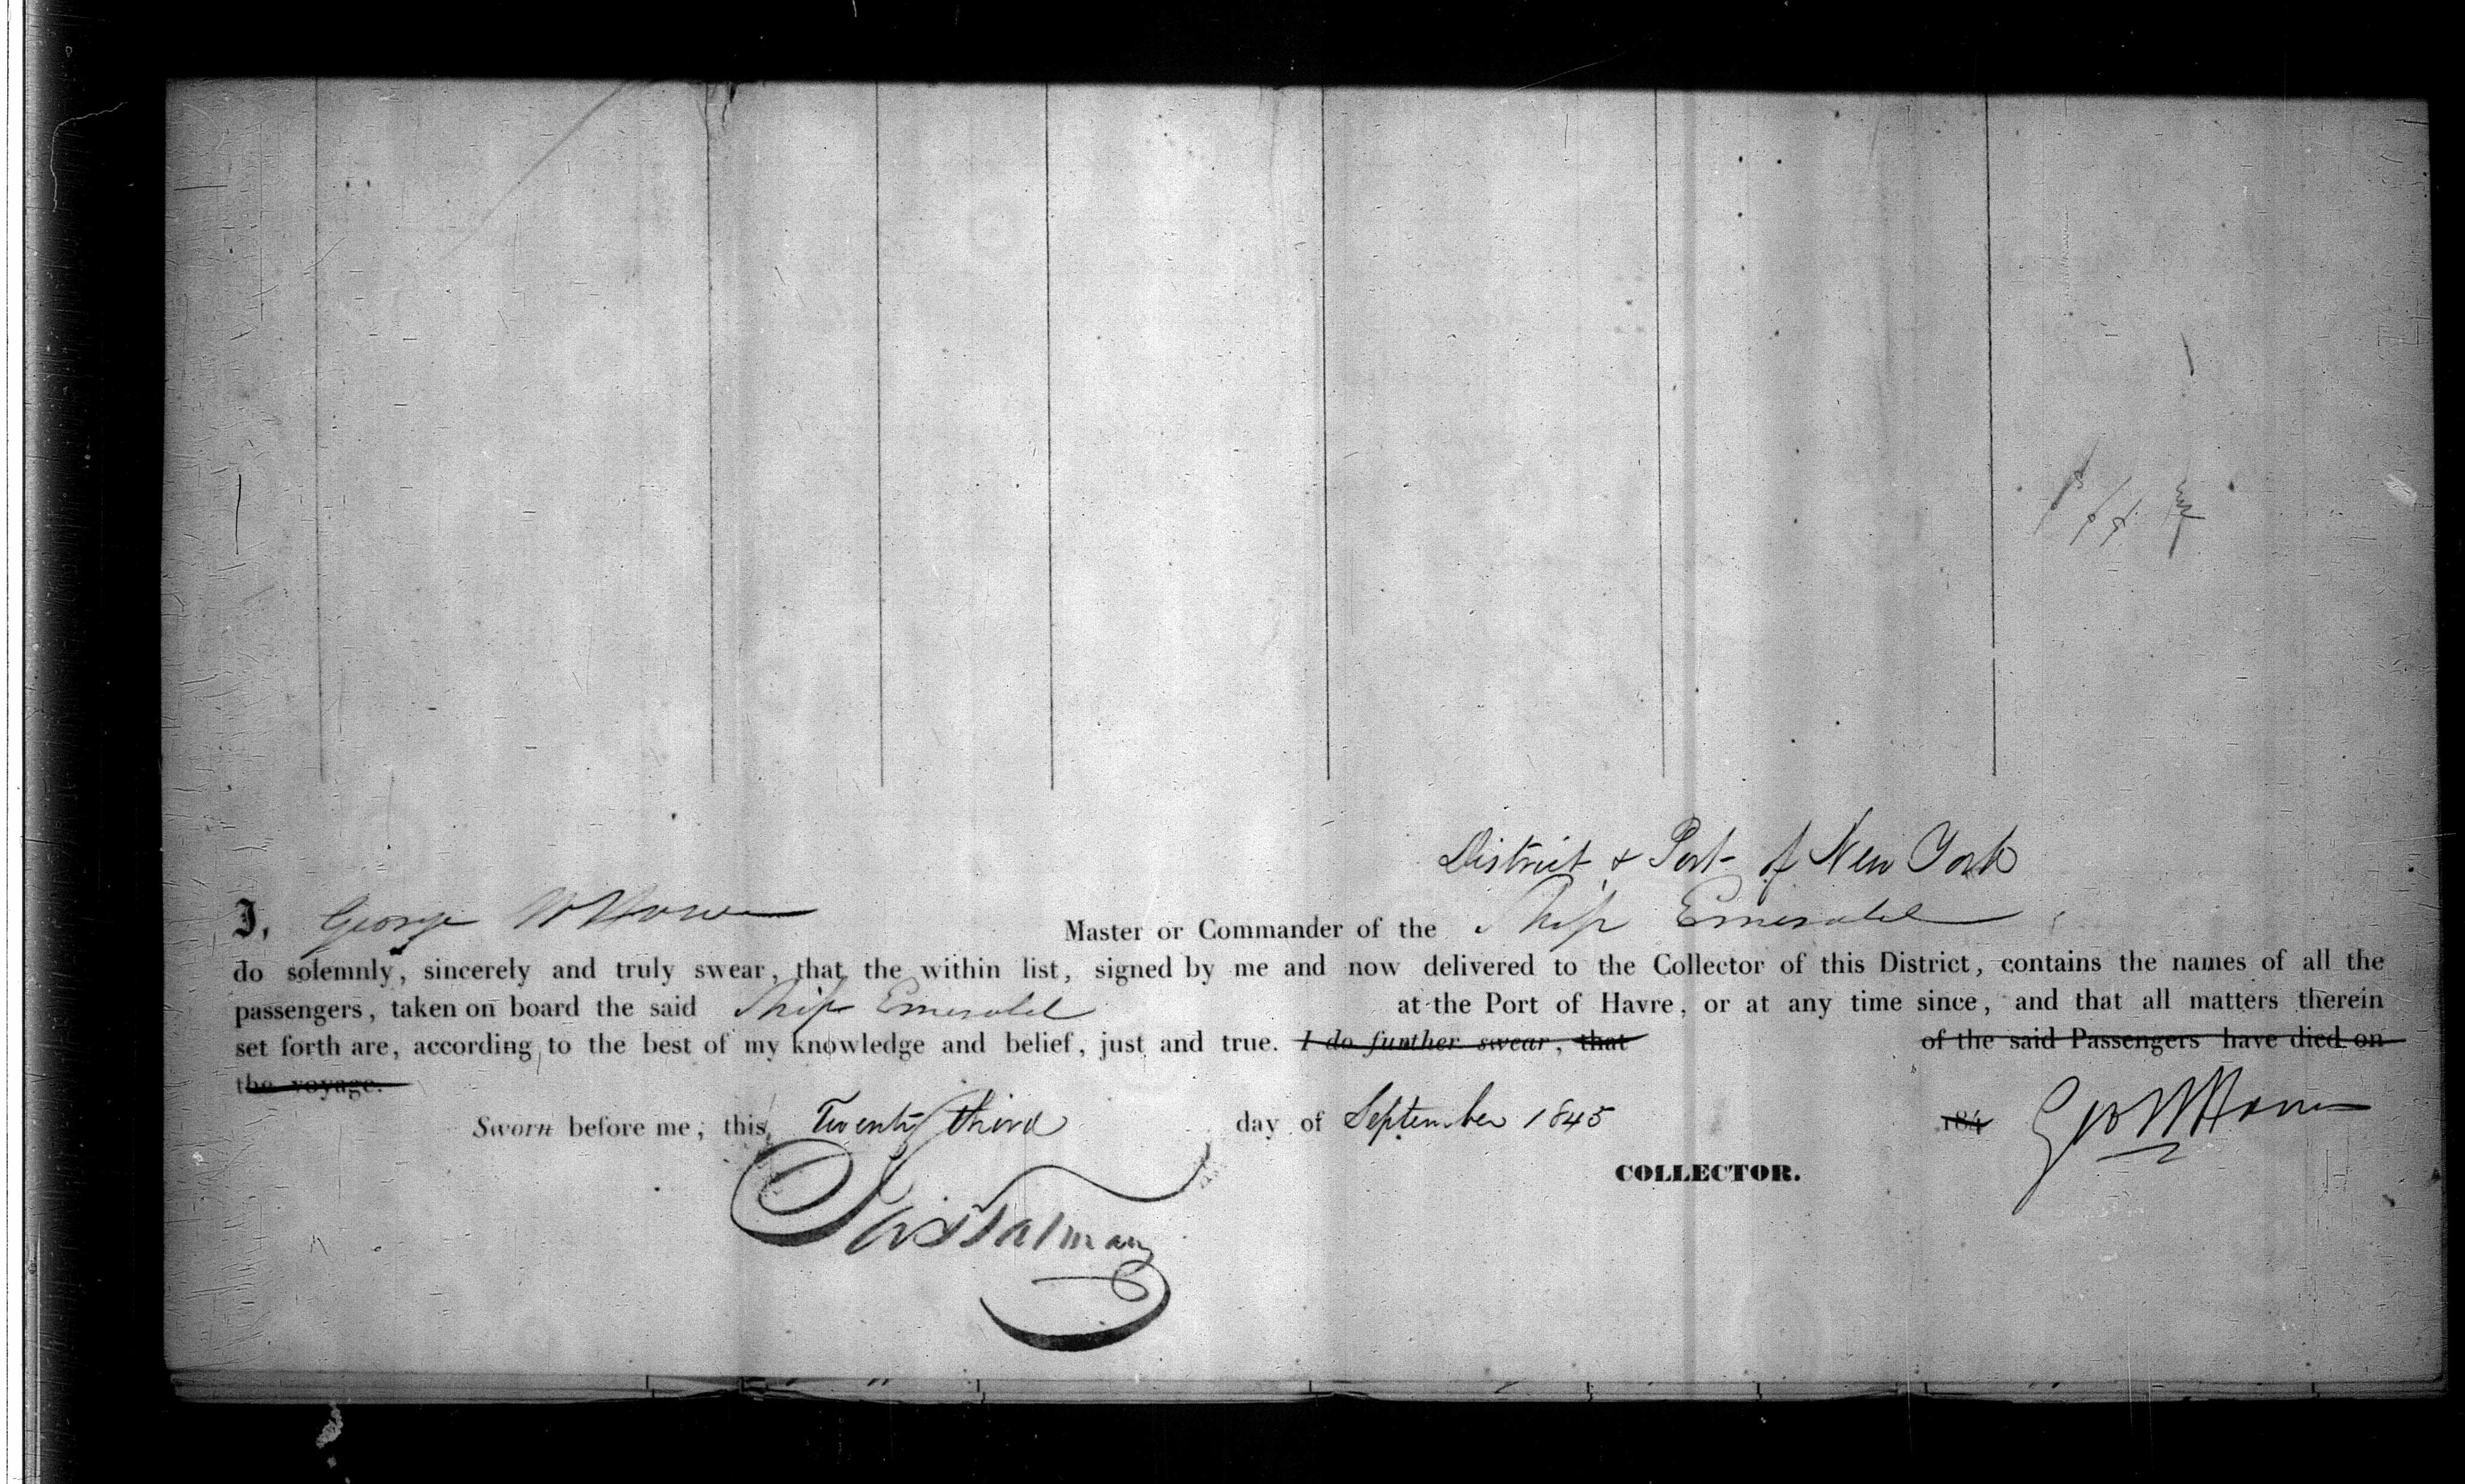 District & Port of New York
I, George W Howe Master or Commander of the Ship Emerald
do solemnly, sincerely and truly swear, that the within list, signed by me and now delivered to the Collector of this District, contains the names of all the
passengers, taken on board the said Ship Emerald at the Port of Havre, or at any time since, and that all matters therein
set forth are, according to the best of my knowledge and belief, just and true. I do further swear, that of the said Passengers have died on
the voyage.
Sworn before me, this Twenty third day of September 1845 184 Geo W Howe
COLLECTOR.